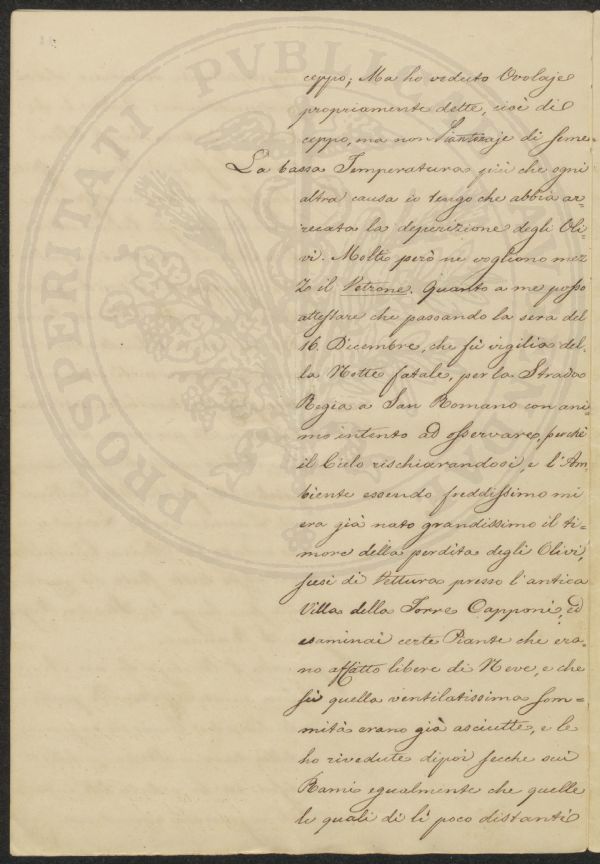 PROSPERITATI PVBLICAE
ceppo; Ma ho veduto Ovolaje
propriamente dette, cioè di
ceppo, ma non Piantonaje di seme
La bassa Temperatura più che ogni
altra causa io tengo che abbia ar=
recata la deperizione degli Oli=
vi. Molti però ne vogliono mez
Z il Vetrone. Quanto a me posso
attestare che passando la sera del
16. Dicembre, che fù vigilia del=
la Notte fatale, per la Strada
Regia a San Romano con ani=
mo intento ad osservare, perchè
il Cielo rischiarandosi, e l'Am
biente essendo freddissimo mi
era già nato grandissimo il ti=
more della perdita degli Olivi,
scesi di Vettura presso l'antica
Villa della Torre Capponi, ed
esaminai certe Piante che era=
no affatto libere di Neve, e che
sù quella ventilatissima som=
mità erano già asciutte, e le
ho rivedute dipoi secche sui
Rami egualmente che quelle
le quali di lì poco distanti